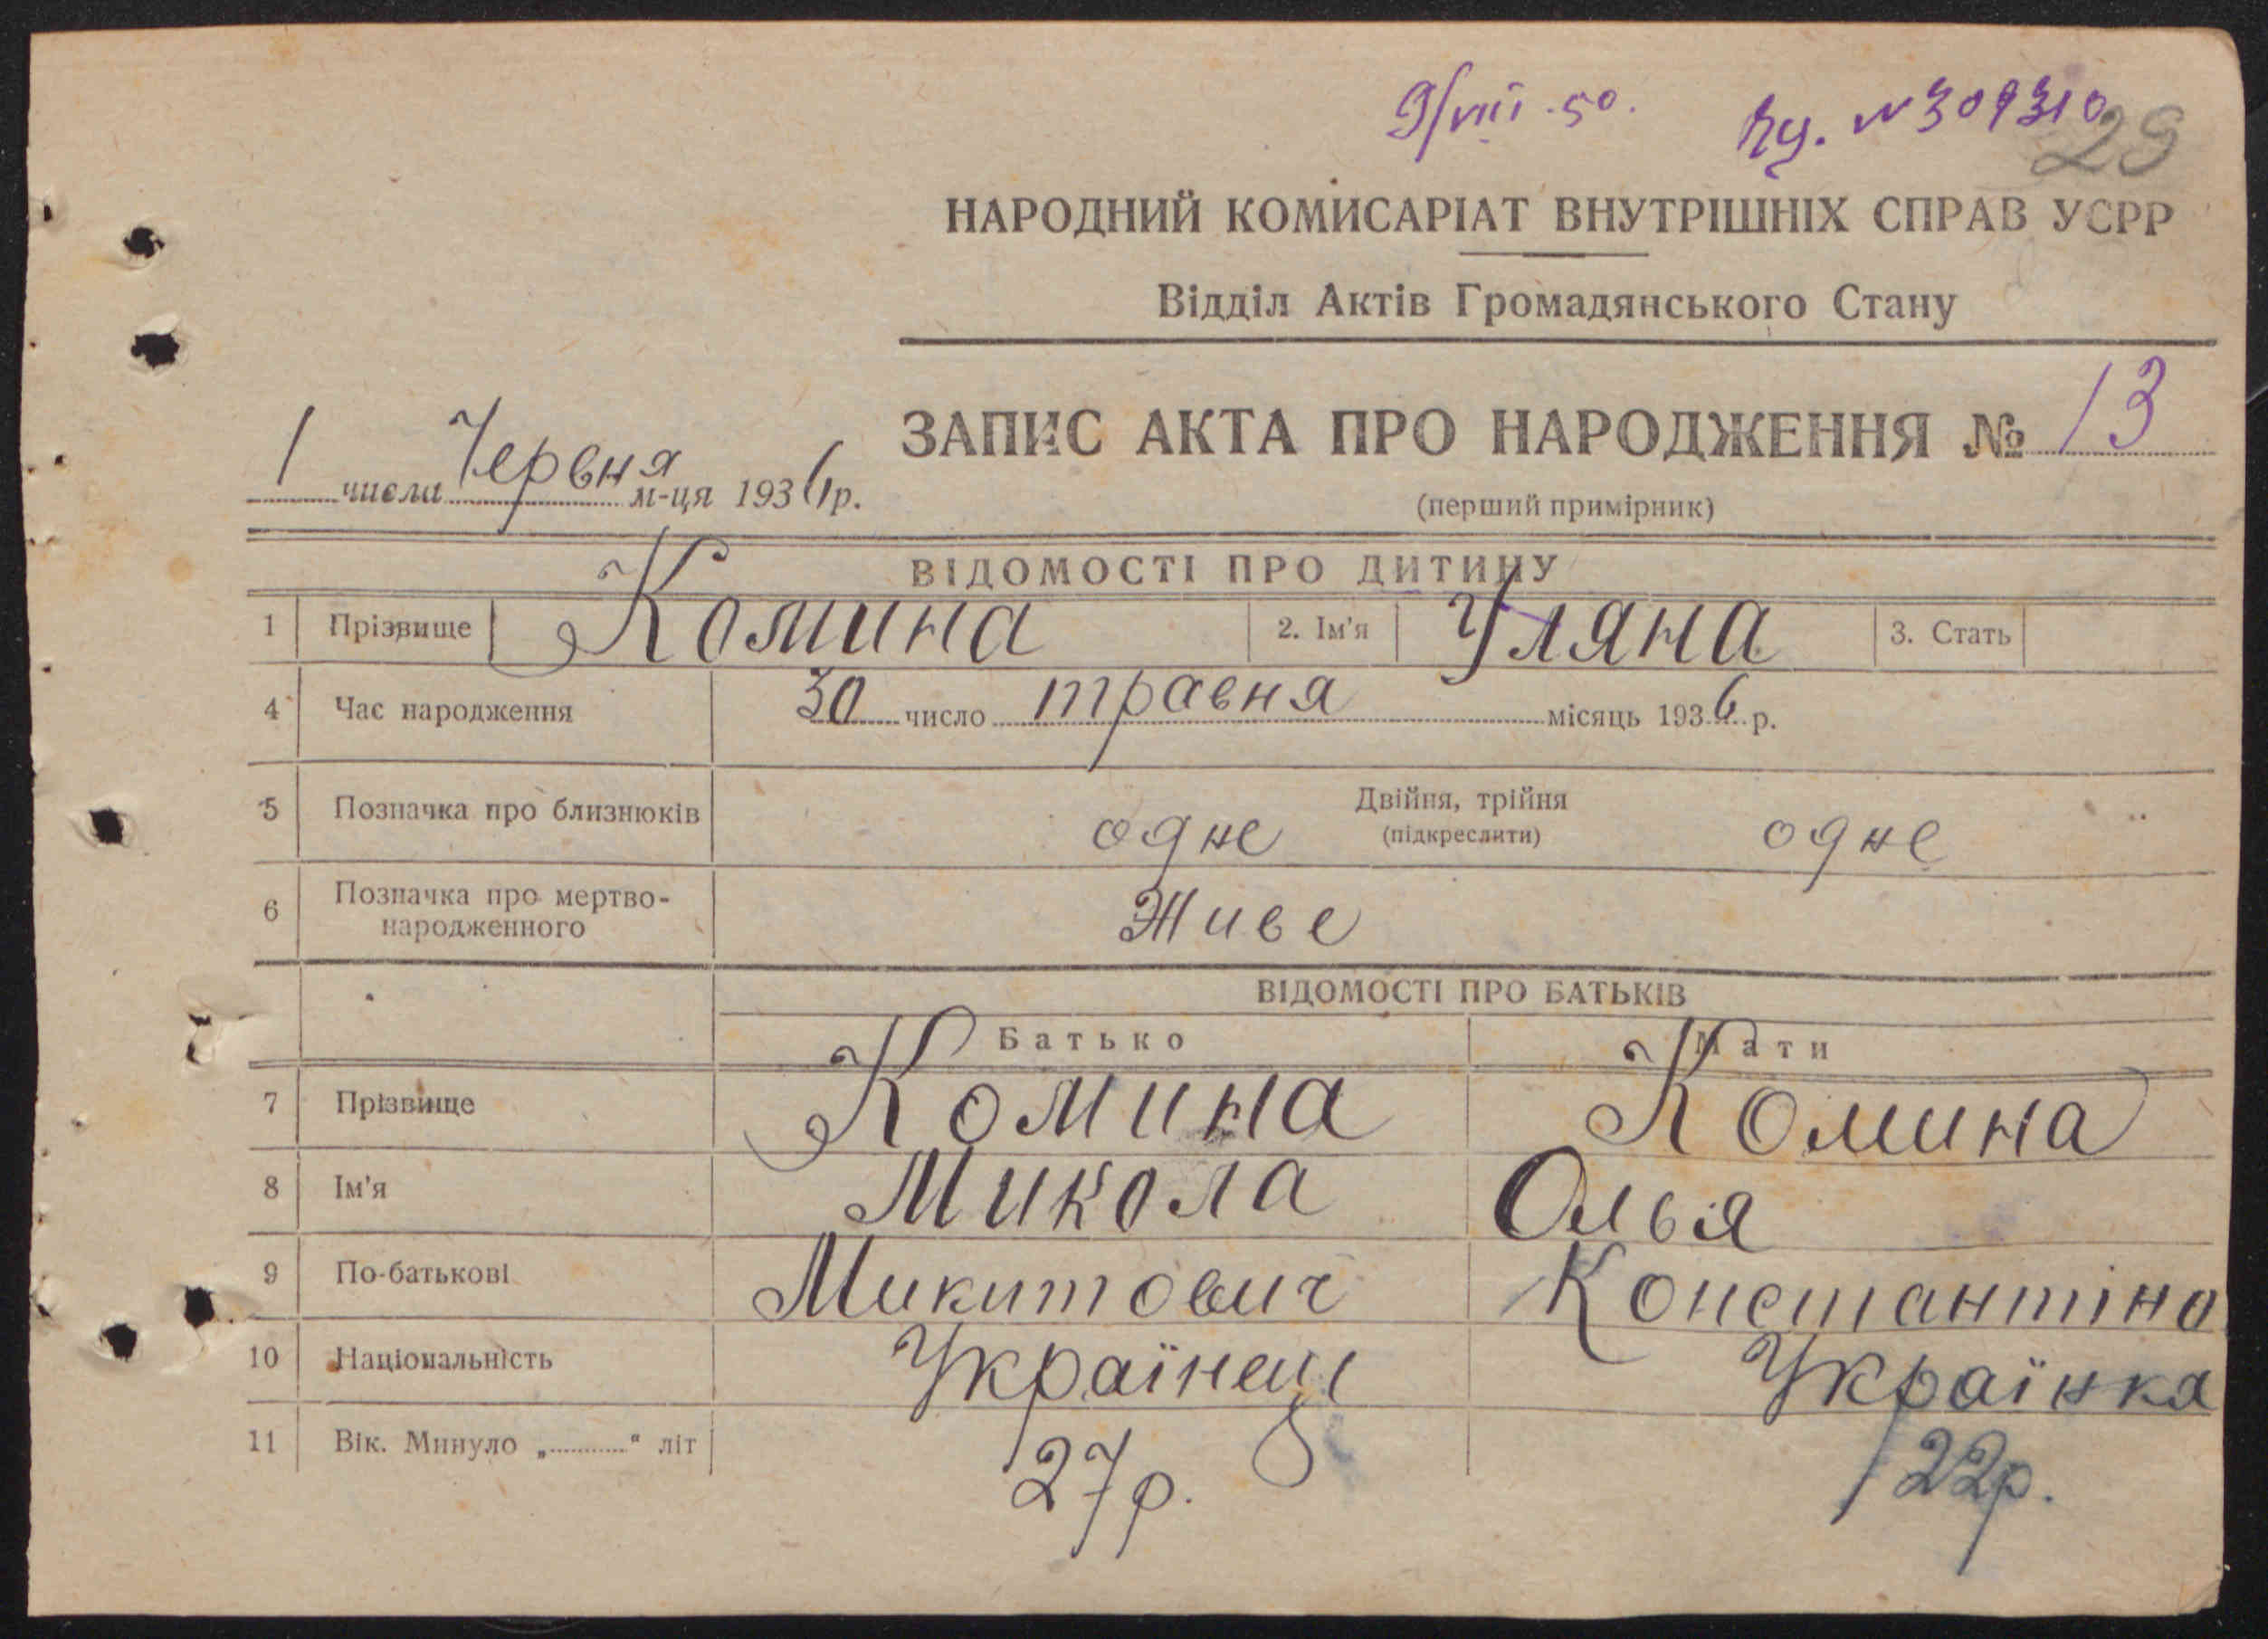 9/VIII-50. № 309310
29
НАРОДНИЙ КОМИСАРІАТ ВНУТРІШНІХ СПРАВ УСРР
Відділ Актів Громадянського Стану
ЗАПИС АКТА ПРО НАРОДЖЕННЯ № 13
1 числа Червня м-ця 1936 р.
(перший примірник)
ВІДОМОСТІ ПРО ДИТИНУ
1 Прізвище Комина 2. Ім'я Уляна 3. Стать
4 Час народження 30 число травня місяць 1936 р.
5 Позначка про близнюків одне Двійня, трійня (підкреслити) одне
6 Позначка про мертво-
народженного Живе
ВІДОМОСТІ ПРО БАТЬКІВ
Батько Мати
7 Прізвище Комина Комина
8 Ім'я Микола Олья
9 По-батькові Микитович Константіно
10 Національність Українець Українка
11 Вік. Минуло „..........“ літ 27р. 22р.